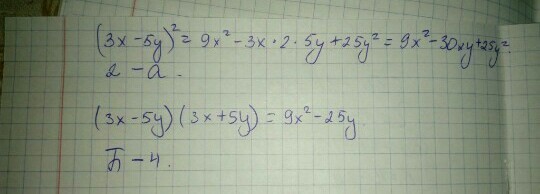 (3x - 5y)² = 9x² - 3x · 2 · 5y + 25y² = 9x² - 30xy + 25y².
2 - a.
(3x - 5y)(3x + 5y) = 9x² - 25y
Б - 4.